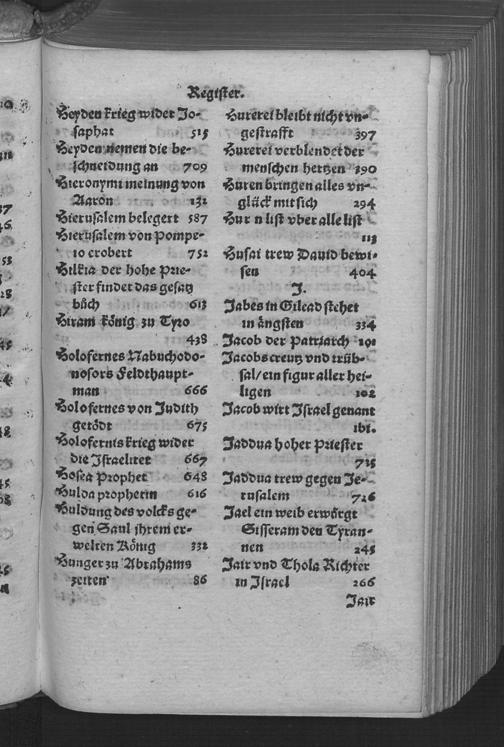 Register.
Heyden krieg wider Jo-
saphat 515
Heyden nemen die be-
schneidung an 709
Hieronymi meinung von
Aaron 132
Hierusalem belegert 587
Hierusalem von Pompe-
io erobert 752
Hilkia der hohe Prie-
ster findet das gesatz
bůch 613
Hiram könig zu Tyro
438
Holofernes Nabuchodo-
nosors Feldthaupt-
man 666
Holofernes von Judith
getödt 675
Holofernis krieg wider
die Israelitet 667
Hosea Prophet 648
Hulda prophetin 616
Huldung des volcks ge-
gen Saul ihrem er-
welten König 332
Hunger zu Abrahams
zeiten 86
Hurerei bleibt nicht vn-
gestrafft 397
Hurerei verblendet der
menschen hertzen 390
Huren bringen alles vn-
glück mit sich 294
Hur n list vber alle list
113
Husai trew Dauid bewi-
sen 404
J.
Jabes in Gilead stehet
in ängsten 334
Jacob der Patriarch 101
Jacobs creutz vnd trüb-
sal/ein figur aller hei-
ligen 102
Jacob wirt Israel genant
ibi.
Jaddua hoher Priester
725
Jaddua trew gegen Je-
rusalem 726
Jael ein weib erwörgt
Sisseram den Tyran-
nen 245
Jair vnd Thola Richter
in Israel 266
Jair